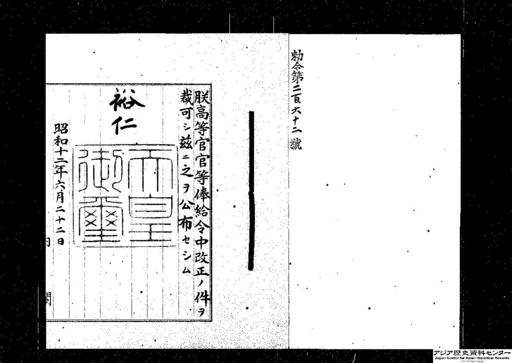 勅令第二百六十二號
朕高等官官等俸給令中改正ノ件ヲ
裁可シ茲ニ之ヲ公布セシム
裕仁
天皇
御璽
昭和十二年六月二十二日
内閣
アジア歴史資料センター
Japan Center for Asian Historical Records